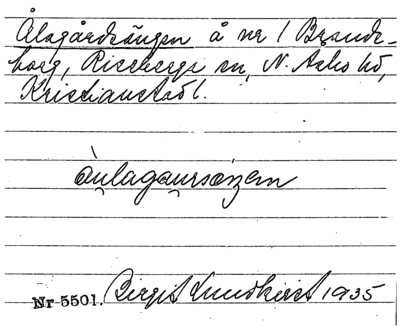 Ålagårdsängen å nr 1 Brands-
borg, Riseberga sn, N. Åsbo hd,
Kristianstad l.
àu̯lagau̯rsæŋen
Nr 5501. Birgit Lundkvist 1935